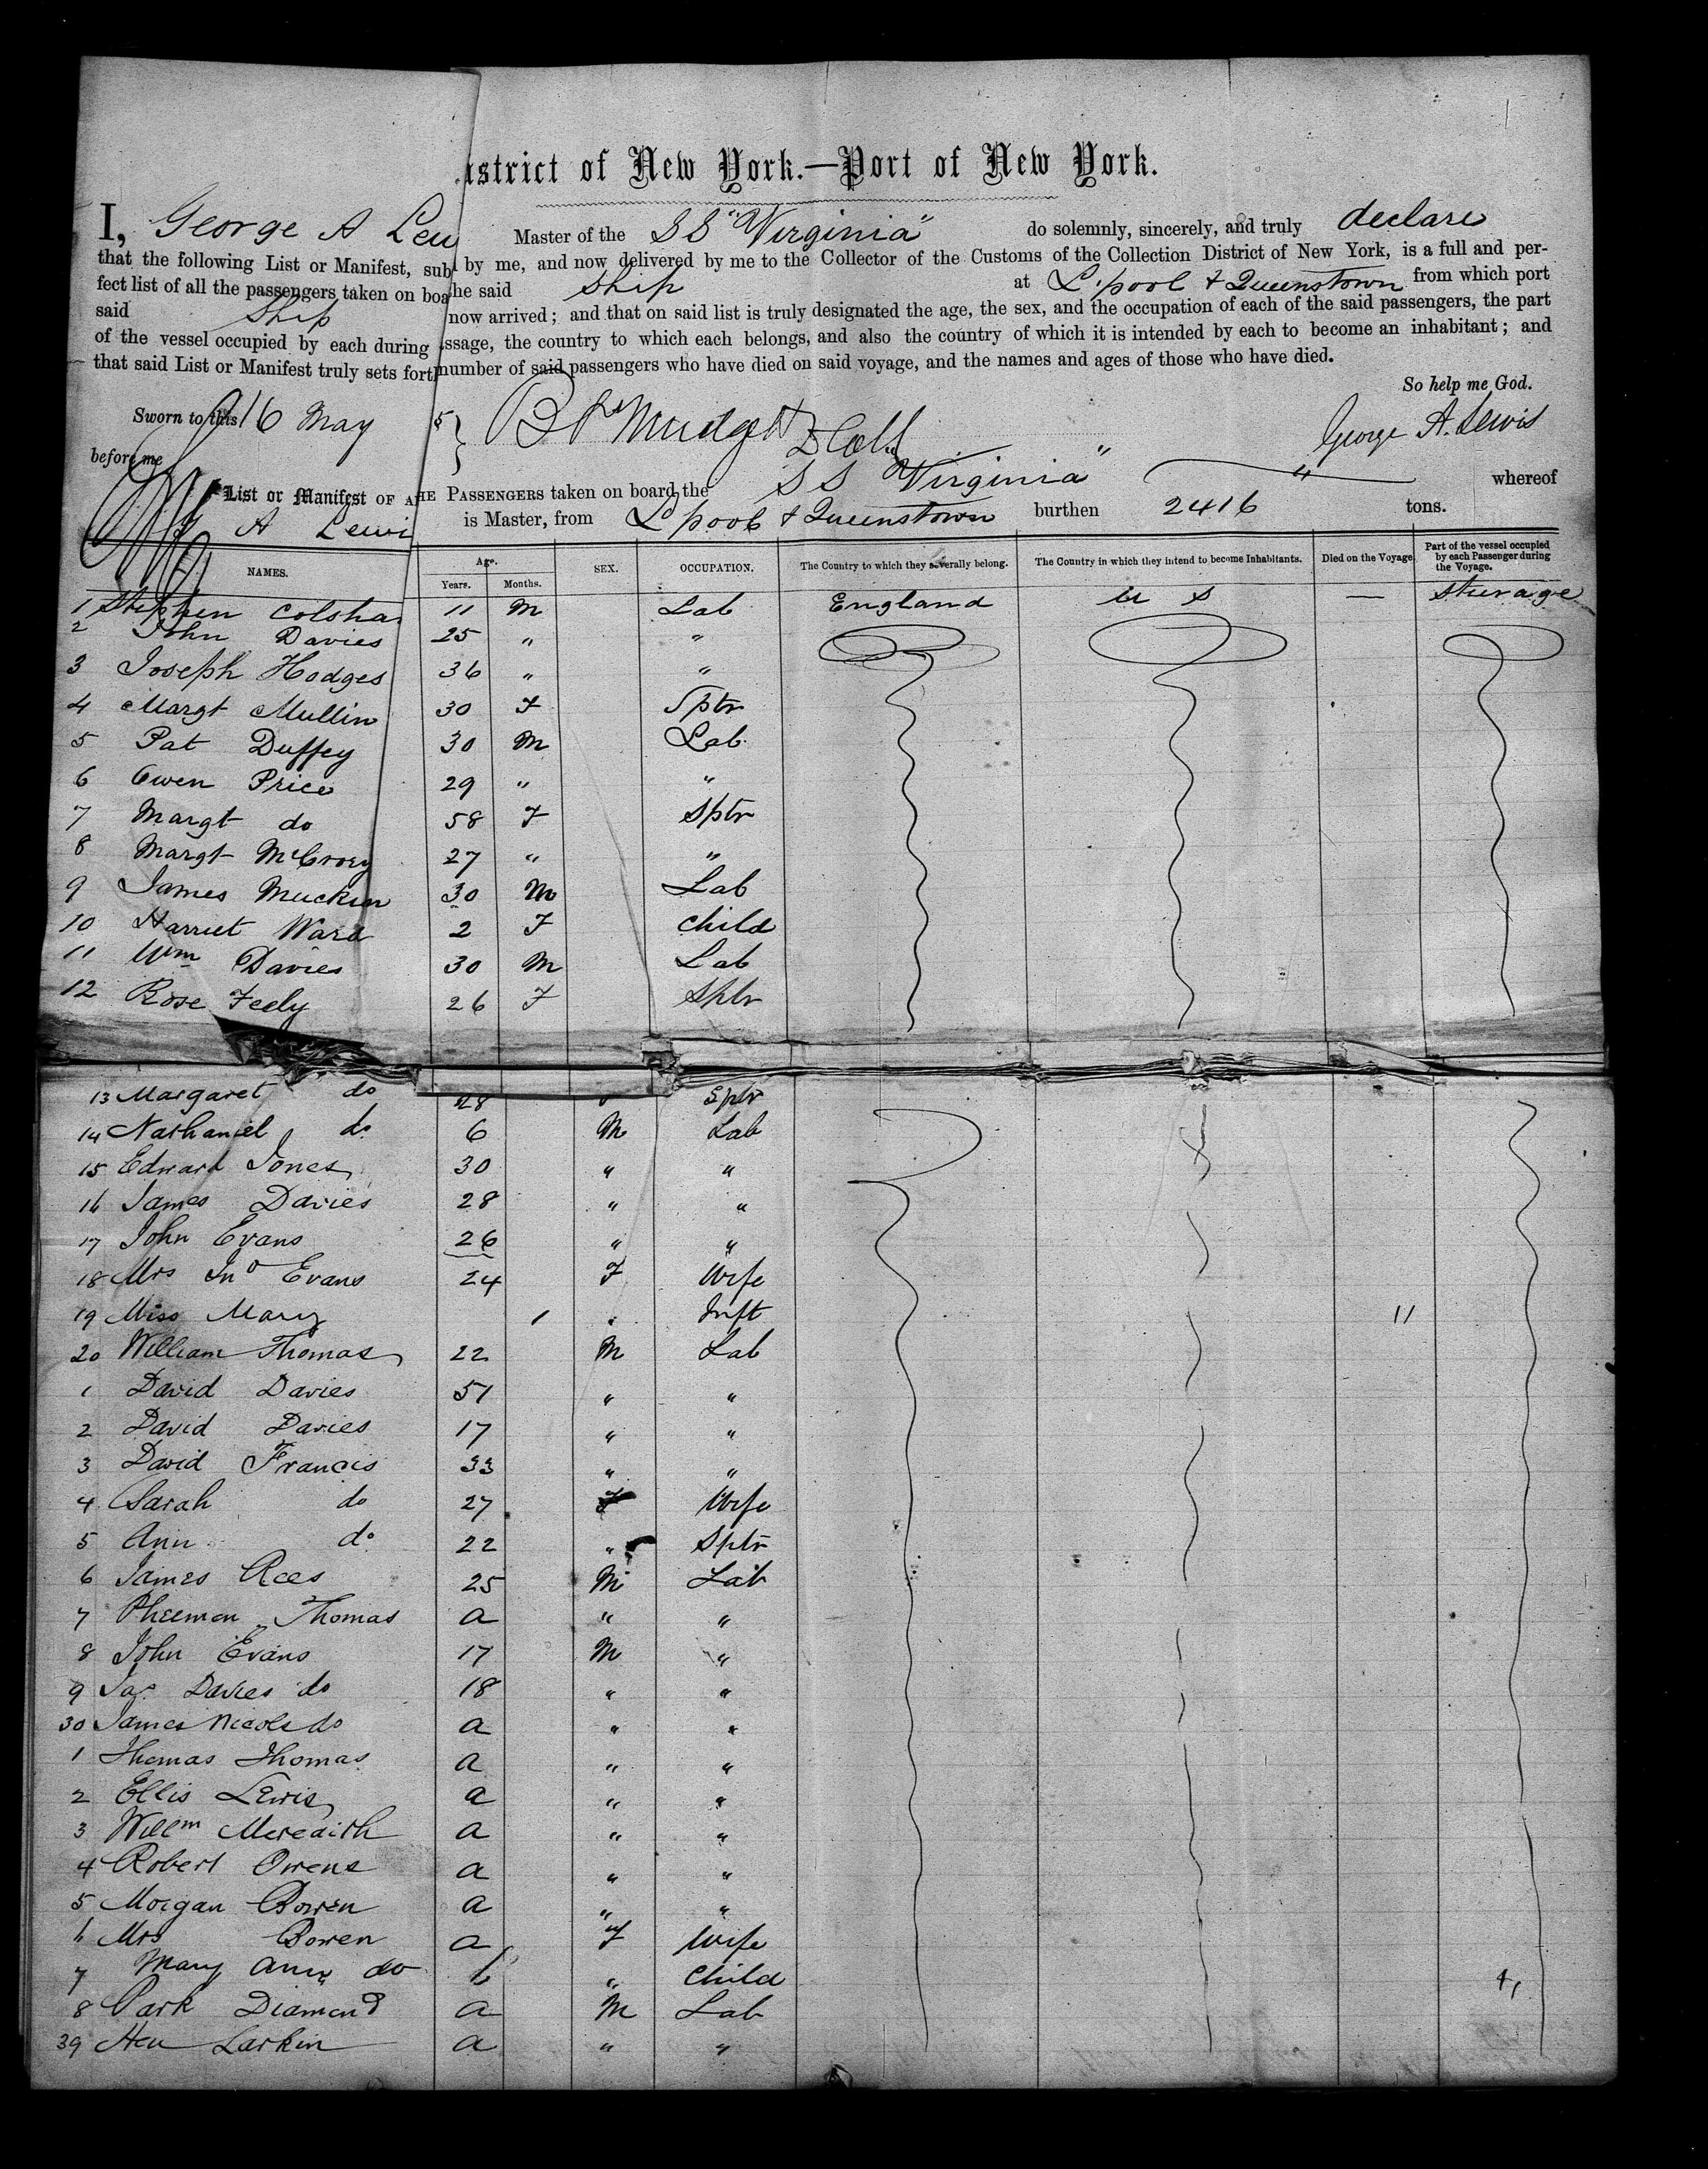 istrict of New York.—Port of New York.
I, George A Lew Master of the SS "Virginia" do solemnly, sincerely, and truly declare
that the following List or Manifest, sub by me, and now delivered by me to the Collector of the Customs of the Collection District of New York, is a full and per-
fect list of all the passengers taken on boa he said Ship at L'pool & Queenstown from which port
said Ship now arrived; and that on said list is truly designated the age, the sex, and the occupation of each of the said passengers, the part
of the vessel occupied by each during assage, the country to which each belongs, and also the country of which it is intended by each to become an inhabitant; and
that said List or Manifest truly sets forth number of said passengers who have died on said voyage, and the names and ages of those who have died.
So help me God.
Sworn to this 16 May 5 George A. Lewis
before me
List or Manifest OF A HE PASSENGERS taken on board the SS Virginia " " whereof
A Lewi is Master, from L'pool & Queenstown burthen 2416 tons.
NAMES. Age. Years. Months. SEX. OCCUPATION. The Country to which they severally belong. The Country in which they intend to become Inhabitants. Died on the Voyage Part of the vessel occupied by each Passenger during the Voyage.
1 Stephen Colsha 11 M Lab England U S — Sturage
2 John Davies 25 " "
3 Joseph Hodges 36 " "
4 Margt Mullin 30 F Sptr
5 Pat Duffey 30 M Lab
6 Owen Price 29 " "
7 Margt do 58 F Sptr
8 Margt 27 " "
9 James Muckin 30 M Lab
10 Harriet Ward 2 F Child
11 Wm Davies 30 M Lab
12 Rose Feely 26 F Sptr
13 Margaret do 28 Sptr
14 Nathaniel do 6 M Lab
15 Edward Jones 30 " "
16 James Davies 28 " "
17 John Evans 26 " "
18 Mrs Jno Evans 24 F Wife
19 Miss Mary 1 " Inft 11
20 William Thomas 22 M Lab
1 David Davies 51 " "
2 David Davies 17 " "
3 David Francis 33 " "
4 Sarah do 27 F Wife
5 Ann do 22 " Sptr
6 James Rees 25 M Lab
7 Thomas a " "
8 John Evans 17 M "
9 Jas. Davies do 18 " "
30 James Nicols do a " "
1 Thomas Thomas a " "
2 Ellis Lewis a " "
3 Willm Meredith a " "
4 Robert Owens a " "
5 Morgan Bowen a " "
6 Mrs Bowen a F Wife
7 Mary Ann do " Child
8 Park Diamond a M Lab
39 Hen Larkin a " "